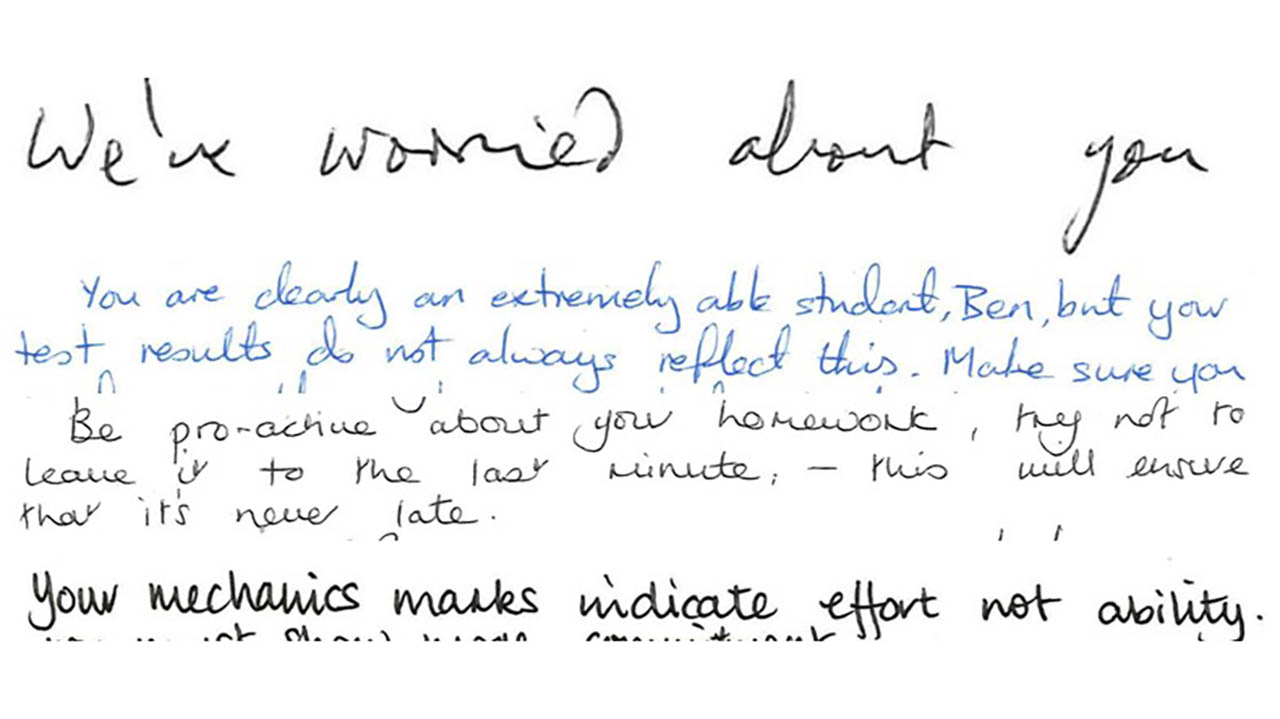 We've worried about you
You are clearly an extremely able student, Ben, but your
test results do not always reflect this. Make sure you
Be pro-active about your homework, try not to
leave it to the last minute, – this will ensure
that it's never late.
Your mechanics marks indicate effort not ability.